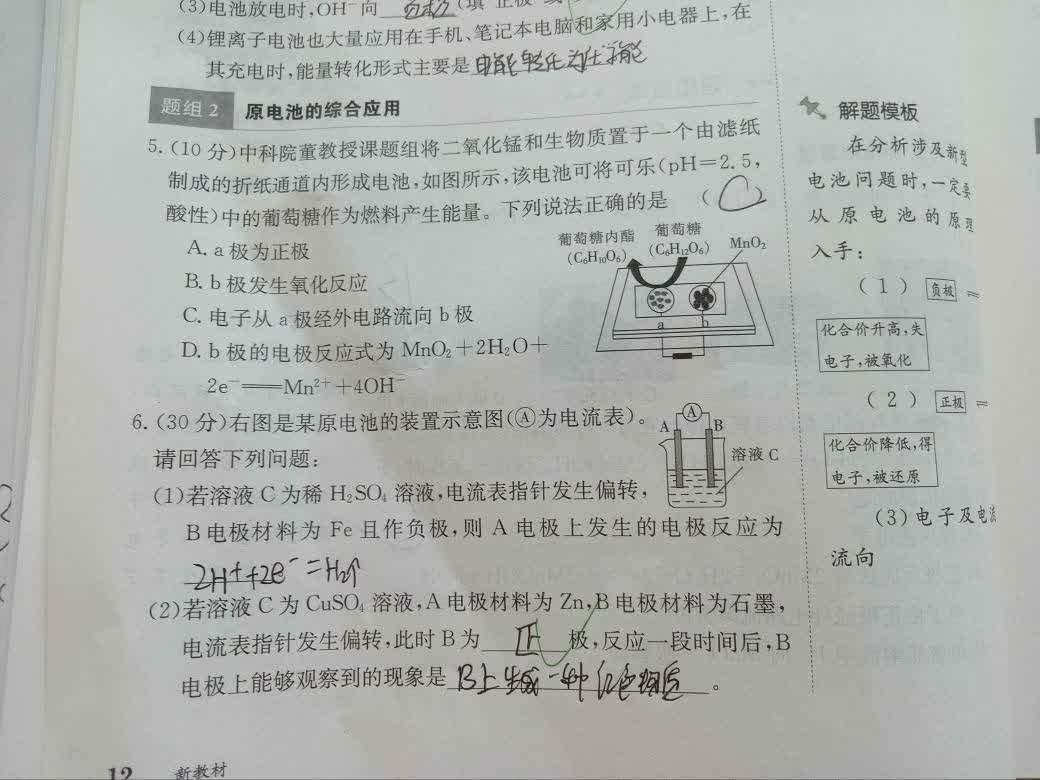 (3)电池放电时,OH⁻向 负极 (填"正极"或
(4)锂离子电池也大量应用在手机、笔记本电脑和家用小电器上,在
其充电时,能量转化形式主要是电能转化为化学能
题组2 原电池的综合应用
5.(10分)中科院董教授课题组将二氧化锰和生物质置于一个由滤纸
制成的折纸通道内形成电池,如图所示,该电池可将可乐(pH=2.5,
酸性)中的葡萄糖作为燃料产生能量。下列说法正确的是 ( C
A. a极为正极
B. b极发生氧化反应
C. 电子从a极经外电路流向b极
D. b极的电极反应式为MnO₂+2H₂O+
2e⁻══Mn²⁺+4OH⁻
葡萄糖内酯
(C₆H₁₀O₆)
葡萄糖
(C₆H₁₂O₆)
MnO₂
a b
6.(30分)右图是某原电池的装置示意图(Ⓐ为电流表)。
请回答下列问题:
A Ⓐ B
溶液C
(1)若溶液C为稀H₂SO₄溶液,电流表指针发生偏转,
B电极材料为Fe且作负极,则A电极上发生的电极反应为
2H⁺+2e⁻=H₂↑
(2)若溶液C为CuSO₄溶液,A电极材料为Zn,B电极材料为石墨,
电流表指针发生偏转,此时B为 正 极,反应一段时间后,B
电极上能够观察到的现象是 B上生成一种红色物质 。
12 新教材
解题模板
在分析涉及新型
电池问题时,一定要
从原电池的原理
入手:
(1) 负极 ═
化合价升高,失
电子,被氧化
(2) 正极 ═
化合价降低,得
电子,被还原
(3)电子及电流
流向